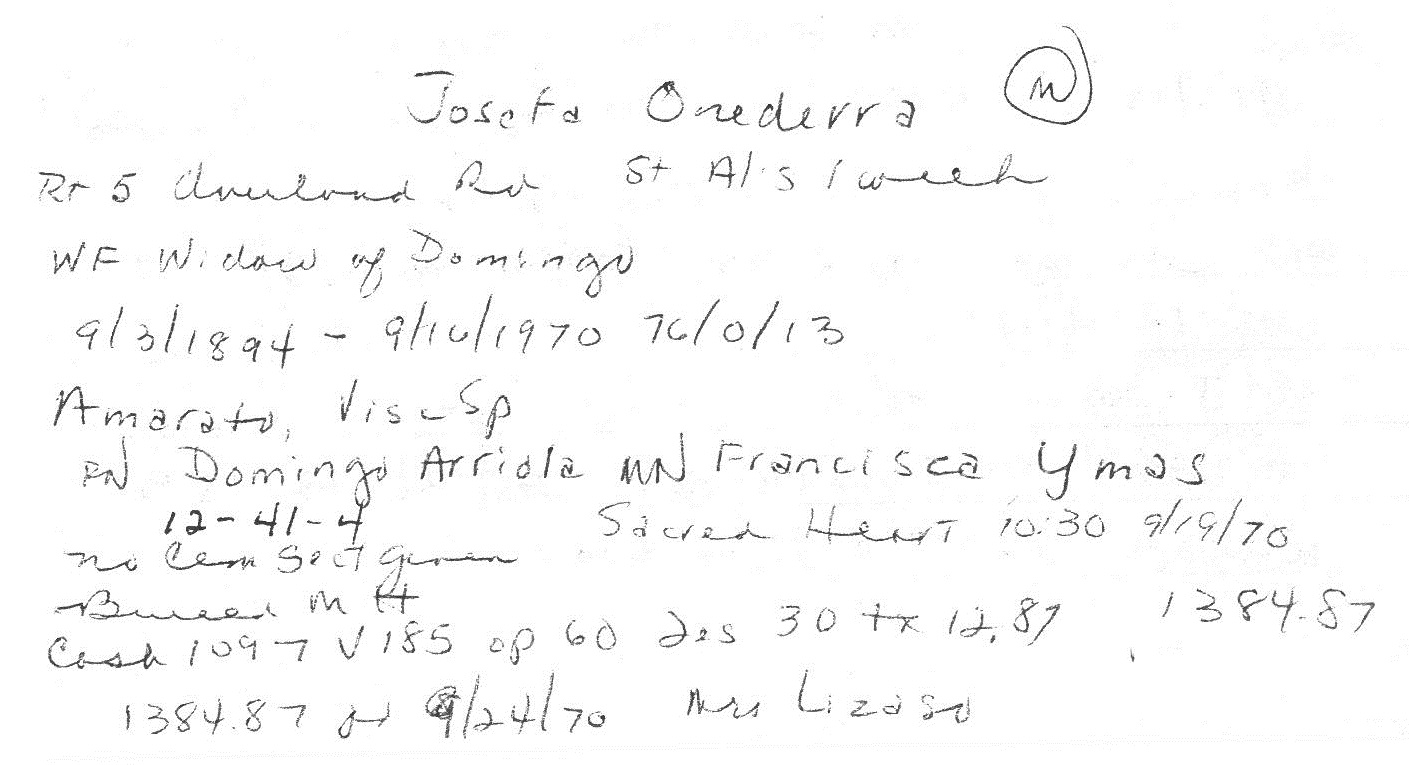 Josefa Onederra M
Rt 5 Overland Rd St Al's 1 week
WF Widow of Domingo
9/3/1894 - 9/16/1970 76/0/13
Amarato, Visc Sp
FN Domingo Arriola MN Francisca Ymas
12-41-4 Sacred Heart 10:30 9/19/70
no Cem Sect given
Buried M H
Cash 1097 V 185 op 60 Des 30 tx 12.87 1384.87
1384.87 pd 9/24/70 Mrs Lizaso